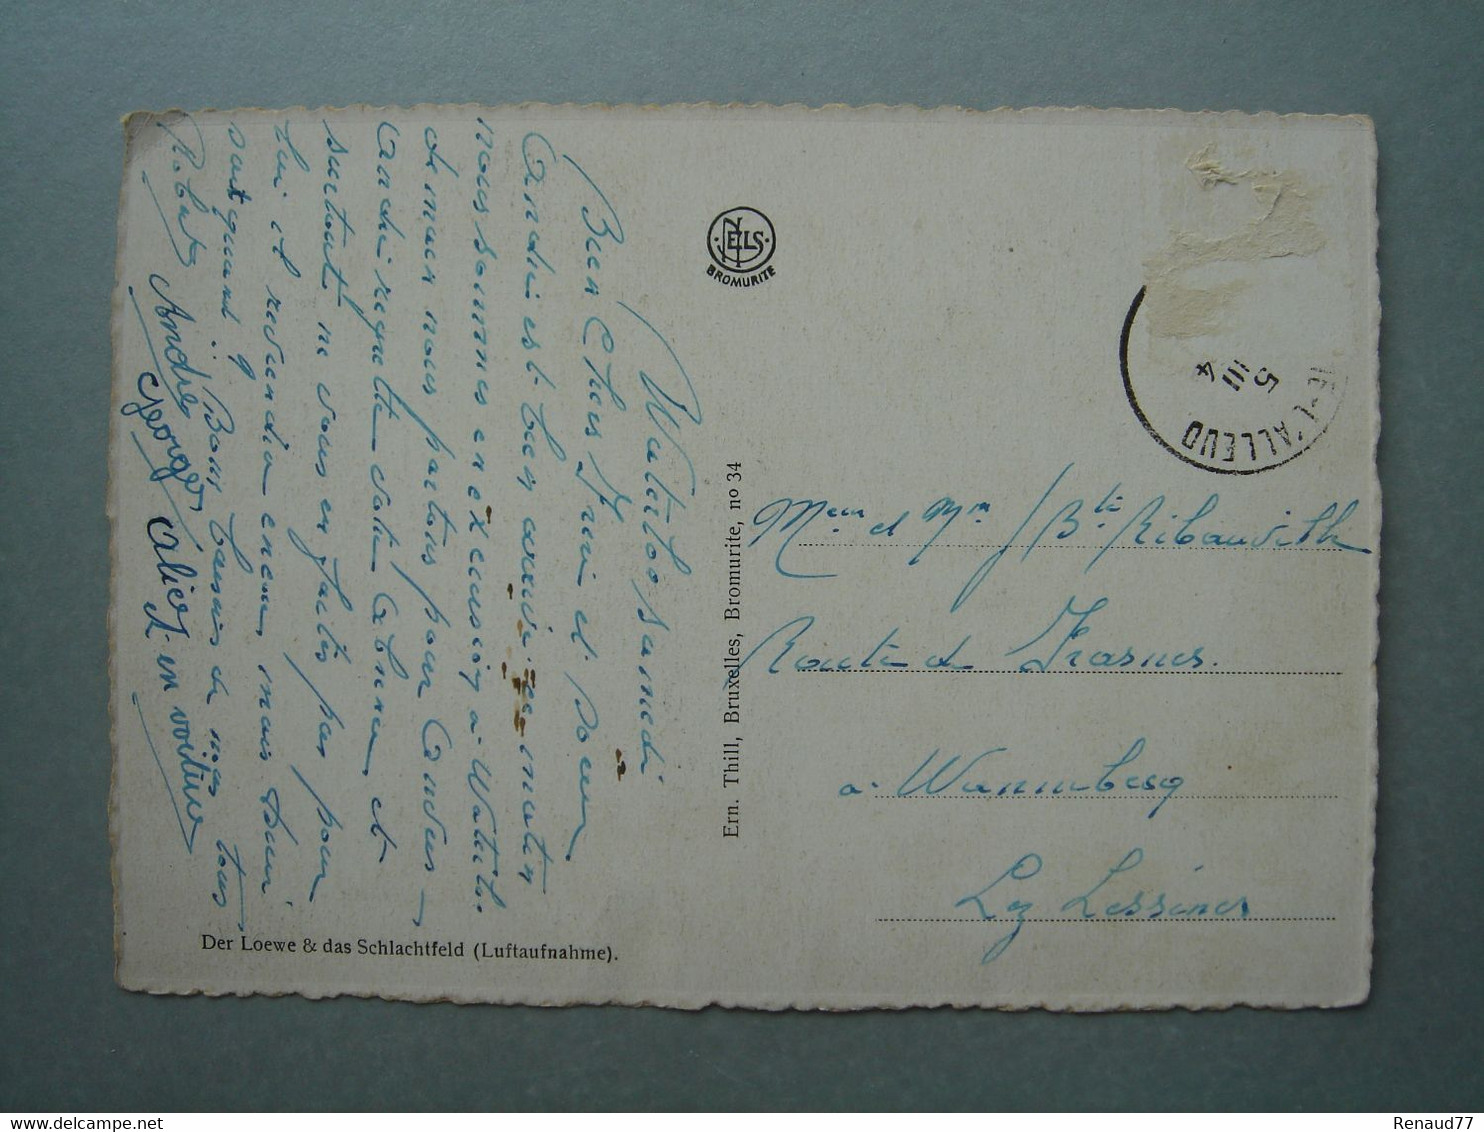 Waterloo samedi
Bien Chers Irini et Soeur
André est bien arrivé ce matin
nous sommes en excursion à Waterlo.
demain nous partons pour Anvers –
André regrette votre absence et
surtout ne vous en faites pas pour
lui il reviendra encore, mais Dieu
sait quand ? Bons baisers de nous tous
Robert André Georges Alice en voiture
NELS
BROMURITE
Ern. Thill, Bruxelles, Bromurite, no 34
Der Loewe & das Schlachtfeld (Luftaufnahme).
NE-L'ALLEUD
5 III 4
et Mm / Bte Ribauville
Route de Frasnes.
à Wannebecq
Lez Lessines
Renaud77